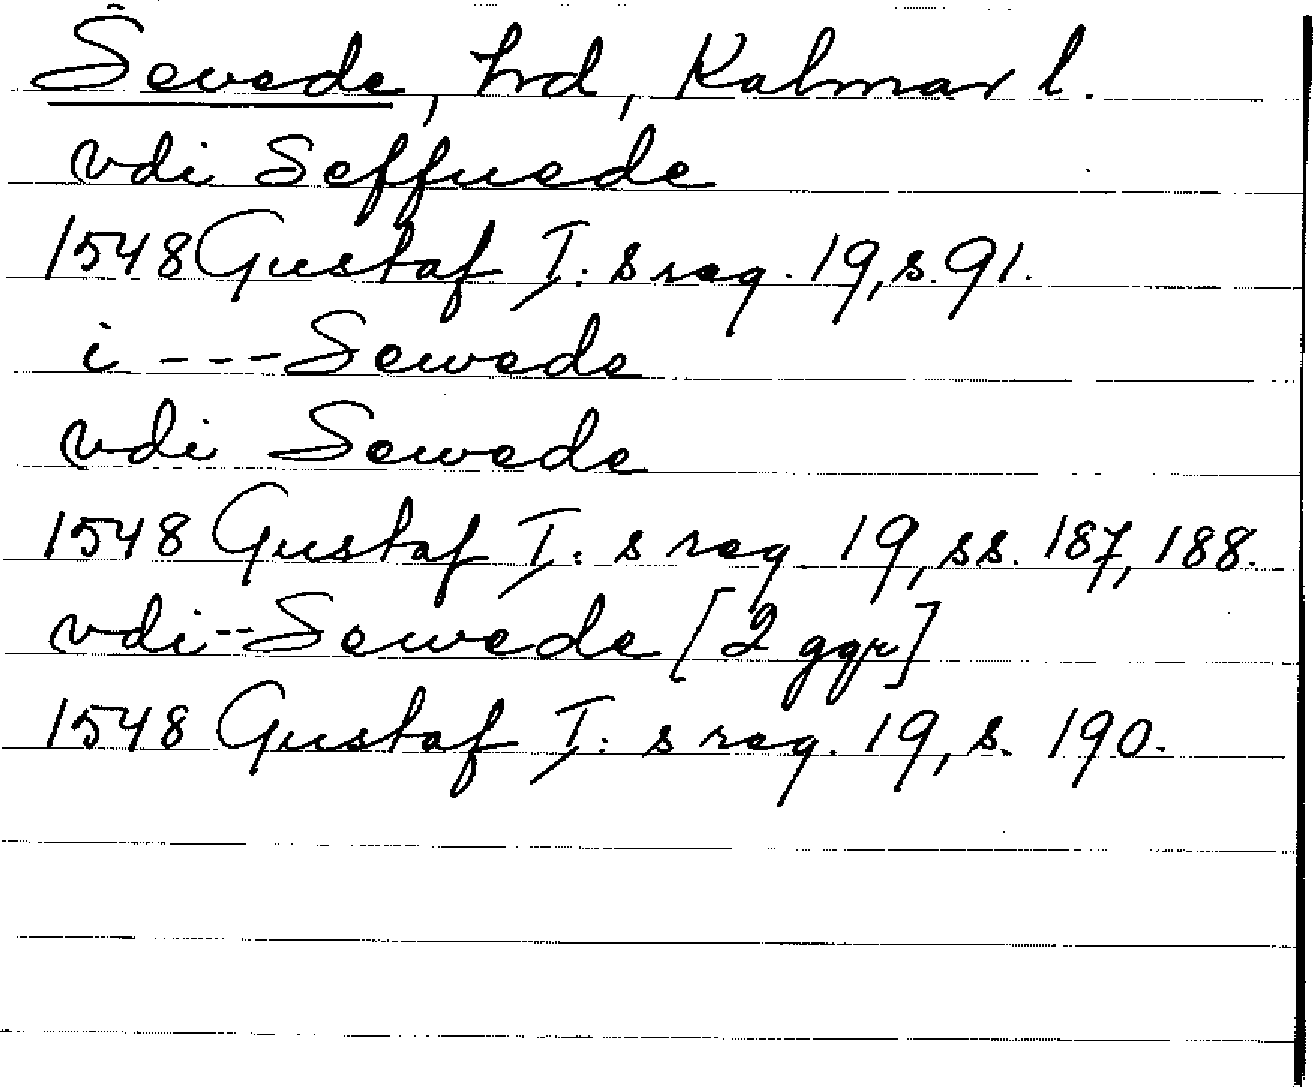 Sevede, hrd, Kalmar l.
vdi Seffuede
1548 Gustaf I:s reg. 19, s. 91.
i --- Sewede
vdi Sewede
1548 Gustaf I:s reg. 19, ss. 187, 188.
vdi -- Sewede [2 ggr]
1548 Gustaf I:s reg. 19, s. 190.